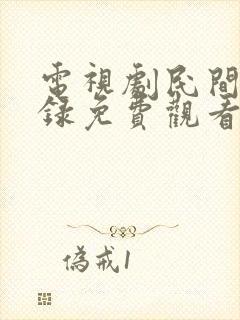 電視劇民間
錄免費觀看
偽戒1